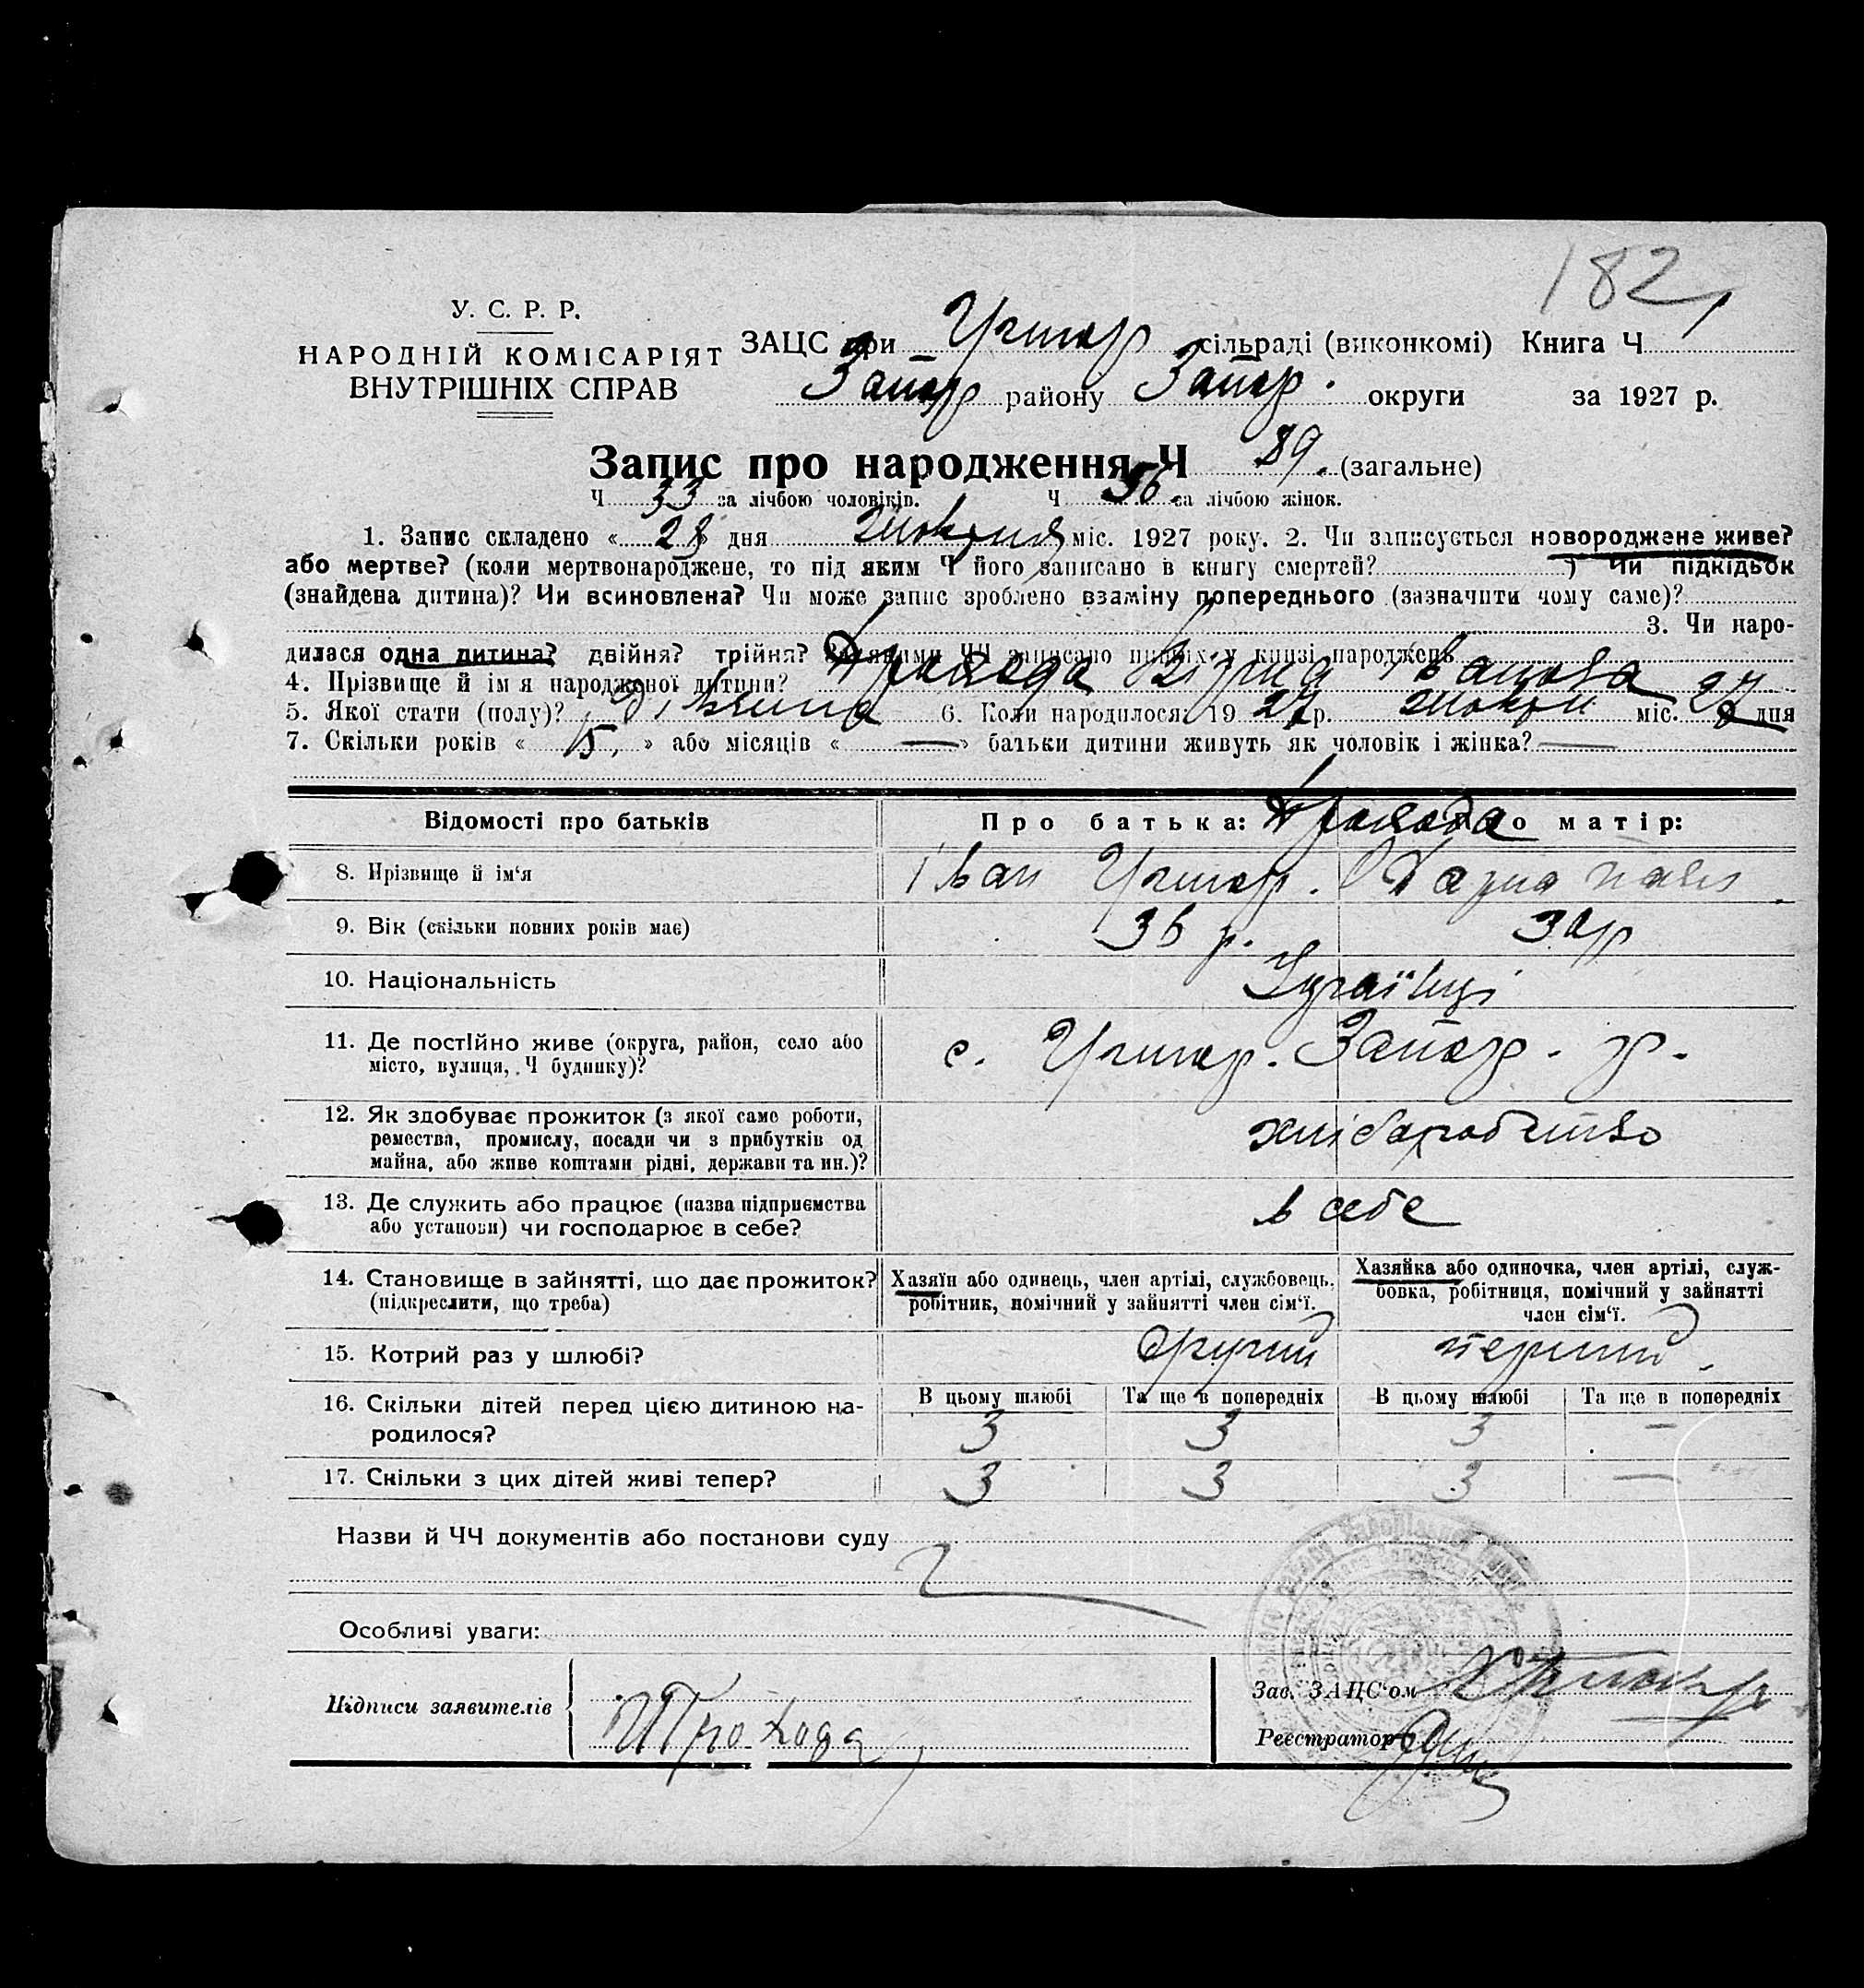 182
У. С. Р. Р.
НАРОДНІЙ КОМІСАРІЯТ
ВНУТРІШНІХ СПРАВ
ЗАЦС при сільраді (виконкомі) Книга Ч
Запор району Запор. округи за 1927 р.
Запис про народження Ч 89. (загальне)
Ч 33 за лічбою чоловіків. Ч 56 за лічбою жінок.
1. Запис складено « 28 » дня міс. 1927 року. 2. Чи записується новороджене живе?
або мертве? (коли мертвонароджене, то під яким Ч його записано в книгу смертей? ) Чи підкідьок
(знайдена дитина)? Чи всиновлена? Чи може запис зроблено взаміну попереднього (зазначити чому саме)?
3. Чи наро-
дилася одна дитина? двійня? трійня? записано инших у книзі народжень
4. Прізвище й ім'я народженої дитини? Трохода Івановa
5. Якої стати (полу)? дівчина 6. Коли народилося: 1927 р. міс. 27 дня
7. Скільки років « 5 » або місяців « — » батьки дитини живуть як чоловік і жінка? —
Відомості про батьків
Про батька: Трохода Про матір:
8. Прізвище й ім'я
Іван
9. Вік (скільки повних років має)
36 р. 30 р
10. Національність
Українці
11. Де постійно живе (округа, район, село або
місто, вулиця, Ч будинку)?
с. Запор. р.
12. Як здобуває прожиток (з якої саме роботи,
ремества, промислу, посади чи з прибутків од
майна, або живе коштами рідні, держави та ин.)?
хліборобство
13. Де служить або працює (назва підприємства
або установи) чи господарює в себе?
в себе
14. Становище в зайнятті, що дає прожиток?
(підкреслити, що треба)
Хазяїн або одинець, член артілі, службовець,
робітник, помічний у зайнятті член сім'ї.
Хазяйка або одиночка, член артілі, служ-
бовка, робітниця, помічний у зайнятті
член сім'ї.
15. Котрий раз у шлюбі?
другий перший
16. Скільки дітей перед цією дитиною на-
родилося?
В цьому шлюбі Та ще в попередніх В цьому шлюбі Та ще в попередніх
3 3 3 —
17. Скільки з цих дітей живі тепер?
3 3 3 —
Назви й ЧЧ документів або постанови суду
Особливі уваги:
Підписи заявителів
И Трохода
Зав. ЗАЦС'ом
Реєстратор